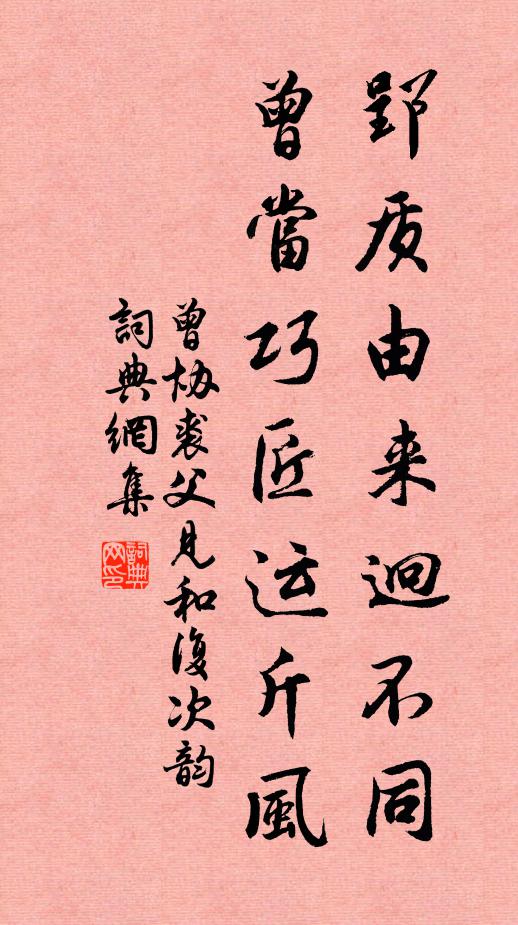 郢质由来迥不同
曾當巧匠运斤風
曾协裘父见和復次韵
詞典網集
詞典网印